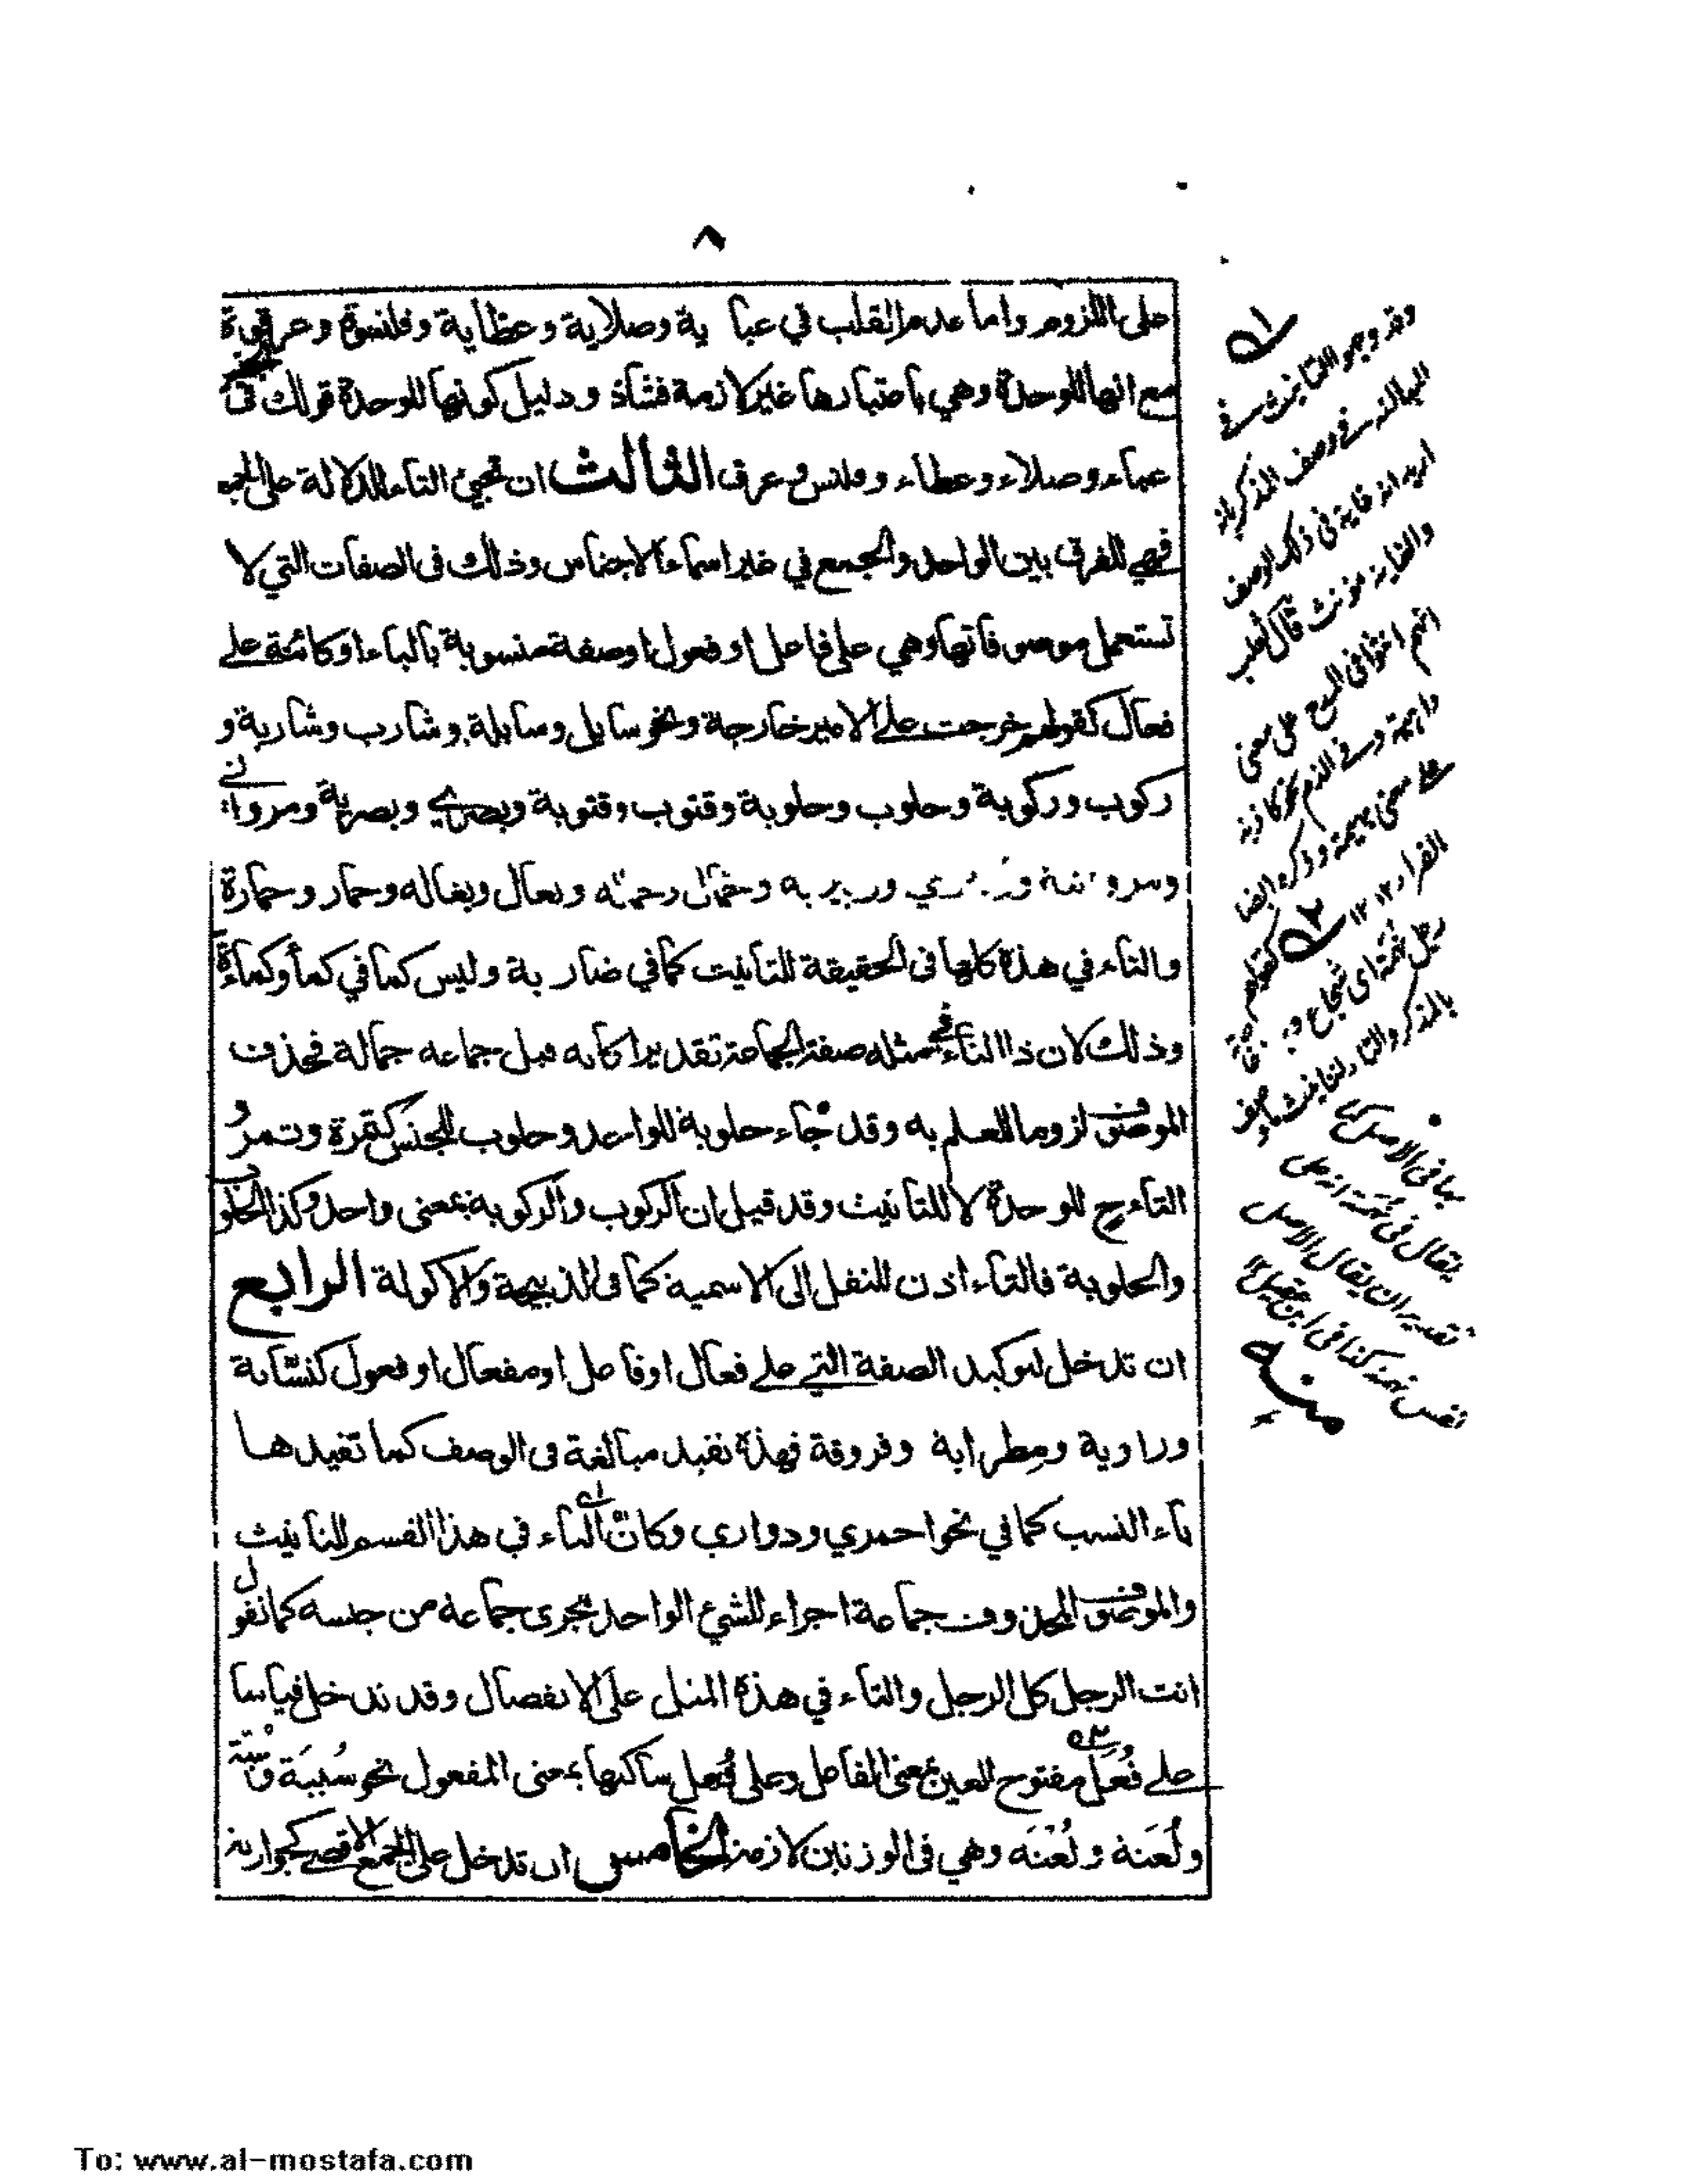 ٨
على اللزوم واما عدم القلب في عباية وصلاية وعظاية وقلنسوة وعرقوة
مع انها للوحدة وهي باعتبارها غير لازمة فشاذ ودليل كونها للوحدة قولك في
عباء وصلاء وعظاء وقلنس وعرق الثالث ان تجيئ التاء للدلالة على الجمع
فهي للفرق بين الواحد والجمع في غير اسماء الاجناس وذلك في الصفات التي لا
تستعمل موصوفاتها وهي على فاعل او فعول او صفة منسوبة بالياء او كائنة على
فعال كقولهم خرجت على الامير خارجة ونحو سابل وسابلة وشارب وشاربة و
ركوب وركوبة وحلوب وحلوبة وقتوب وقتوبة وبصري وبصرية ومرواني
وبغال وبغاله وحمار وحمارة
والتاء في هذة كلها في الحقيقة للتانيث كما في ضاربة وليس كما في كمأ وكمأة
وذلك لان ذا التاء في مثله صفة الجماعة تقديرا كانه قيل جماعه جمالة فحذف
الموصوف لزوما للعلم به وقد جاء حلوبة للواحد وحلوب للجنس كتمرة وتمر و
التاءح للوحدة لا للتانيث وقد قيل ان الركوب والركوبة بمعنى واحد وكذا الحلوب
والحلوبة فالتاء اذن للنقل الى الاسمية كما في الذبيحة والاكولة الرابع
ان تدخل لتوكيد الصفة التي على فعال او فاعل او مفعال او فعول كنسّابة
وراوية ومطرابة وفروقة فهذة تفيد مبالغة في الوصف كما تفيدها
ياء النسب كما في نحو احمري ودواري وكانّ التاء في هذا القسم للتانيث
اي
والموصوف المحذوف جماعة اجراء للشئ الواحد مجرى جماعة من جنسه كما تقول
انت الرجل كل الرجل والتاء في هذة المثل على الانفصال وقد تدخل قياسا
على فُعَل مفتوح العين بمعنى الفاعل وعلى فُعل ساكنها بمعنى المفعول نحو سُبَبَة
ولُعَنة ولُعْنَه وهي في الوزنين لازمة الخامس ان تدخل على الجمع الاقصى كجواربة
وقد وجهوا التانيث في
المبالغة في وصف المذكر بانه
اريد انه غاية في ذلك الوصف
والغاية مونث قال ثعلب
انهم انثوا في المدح على معنى
داهية وفي الذم
على معنى بهيمة وذكره ايضا
الفراء ١٢
بالمذكر والتاء لتانيث
يقال في
تقدير ان يقال الاصل
نفس كذا في ابن عقيل ١٢
منه
To: www.al-mostafa.com